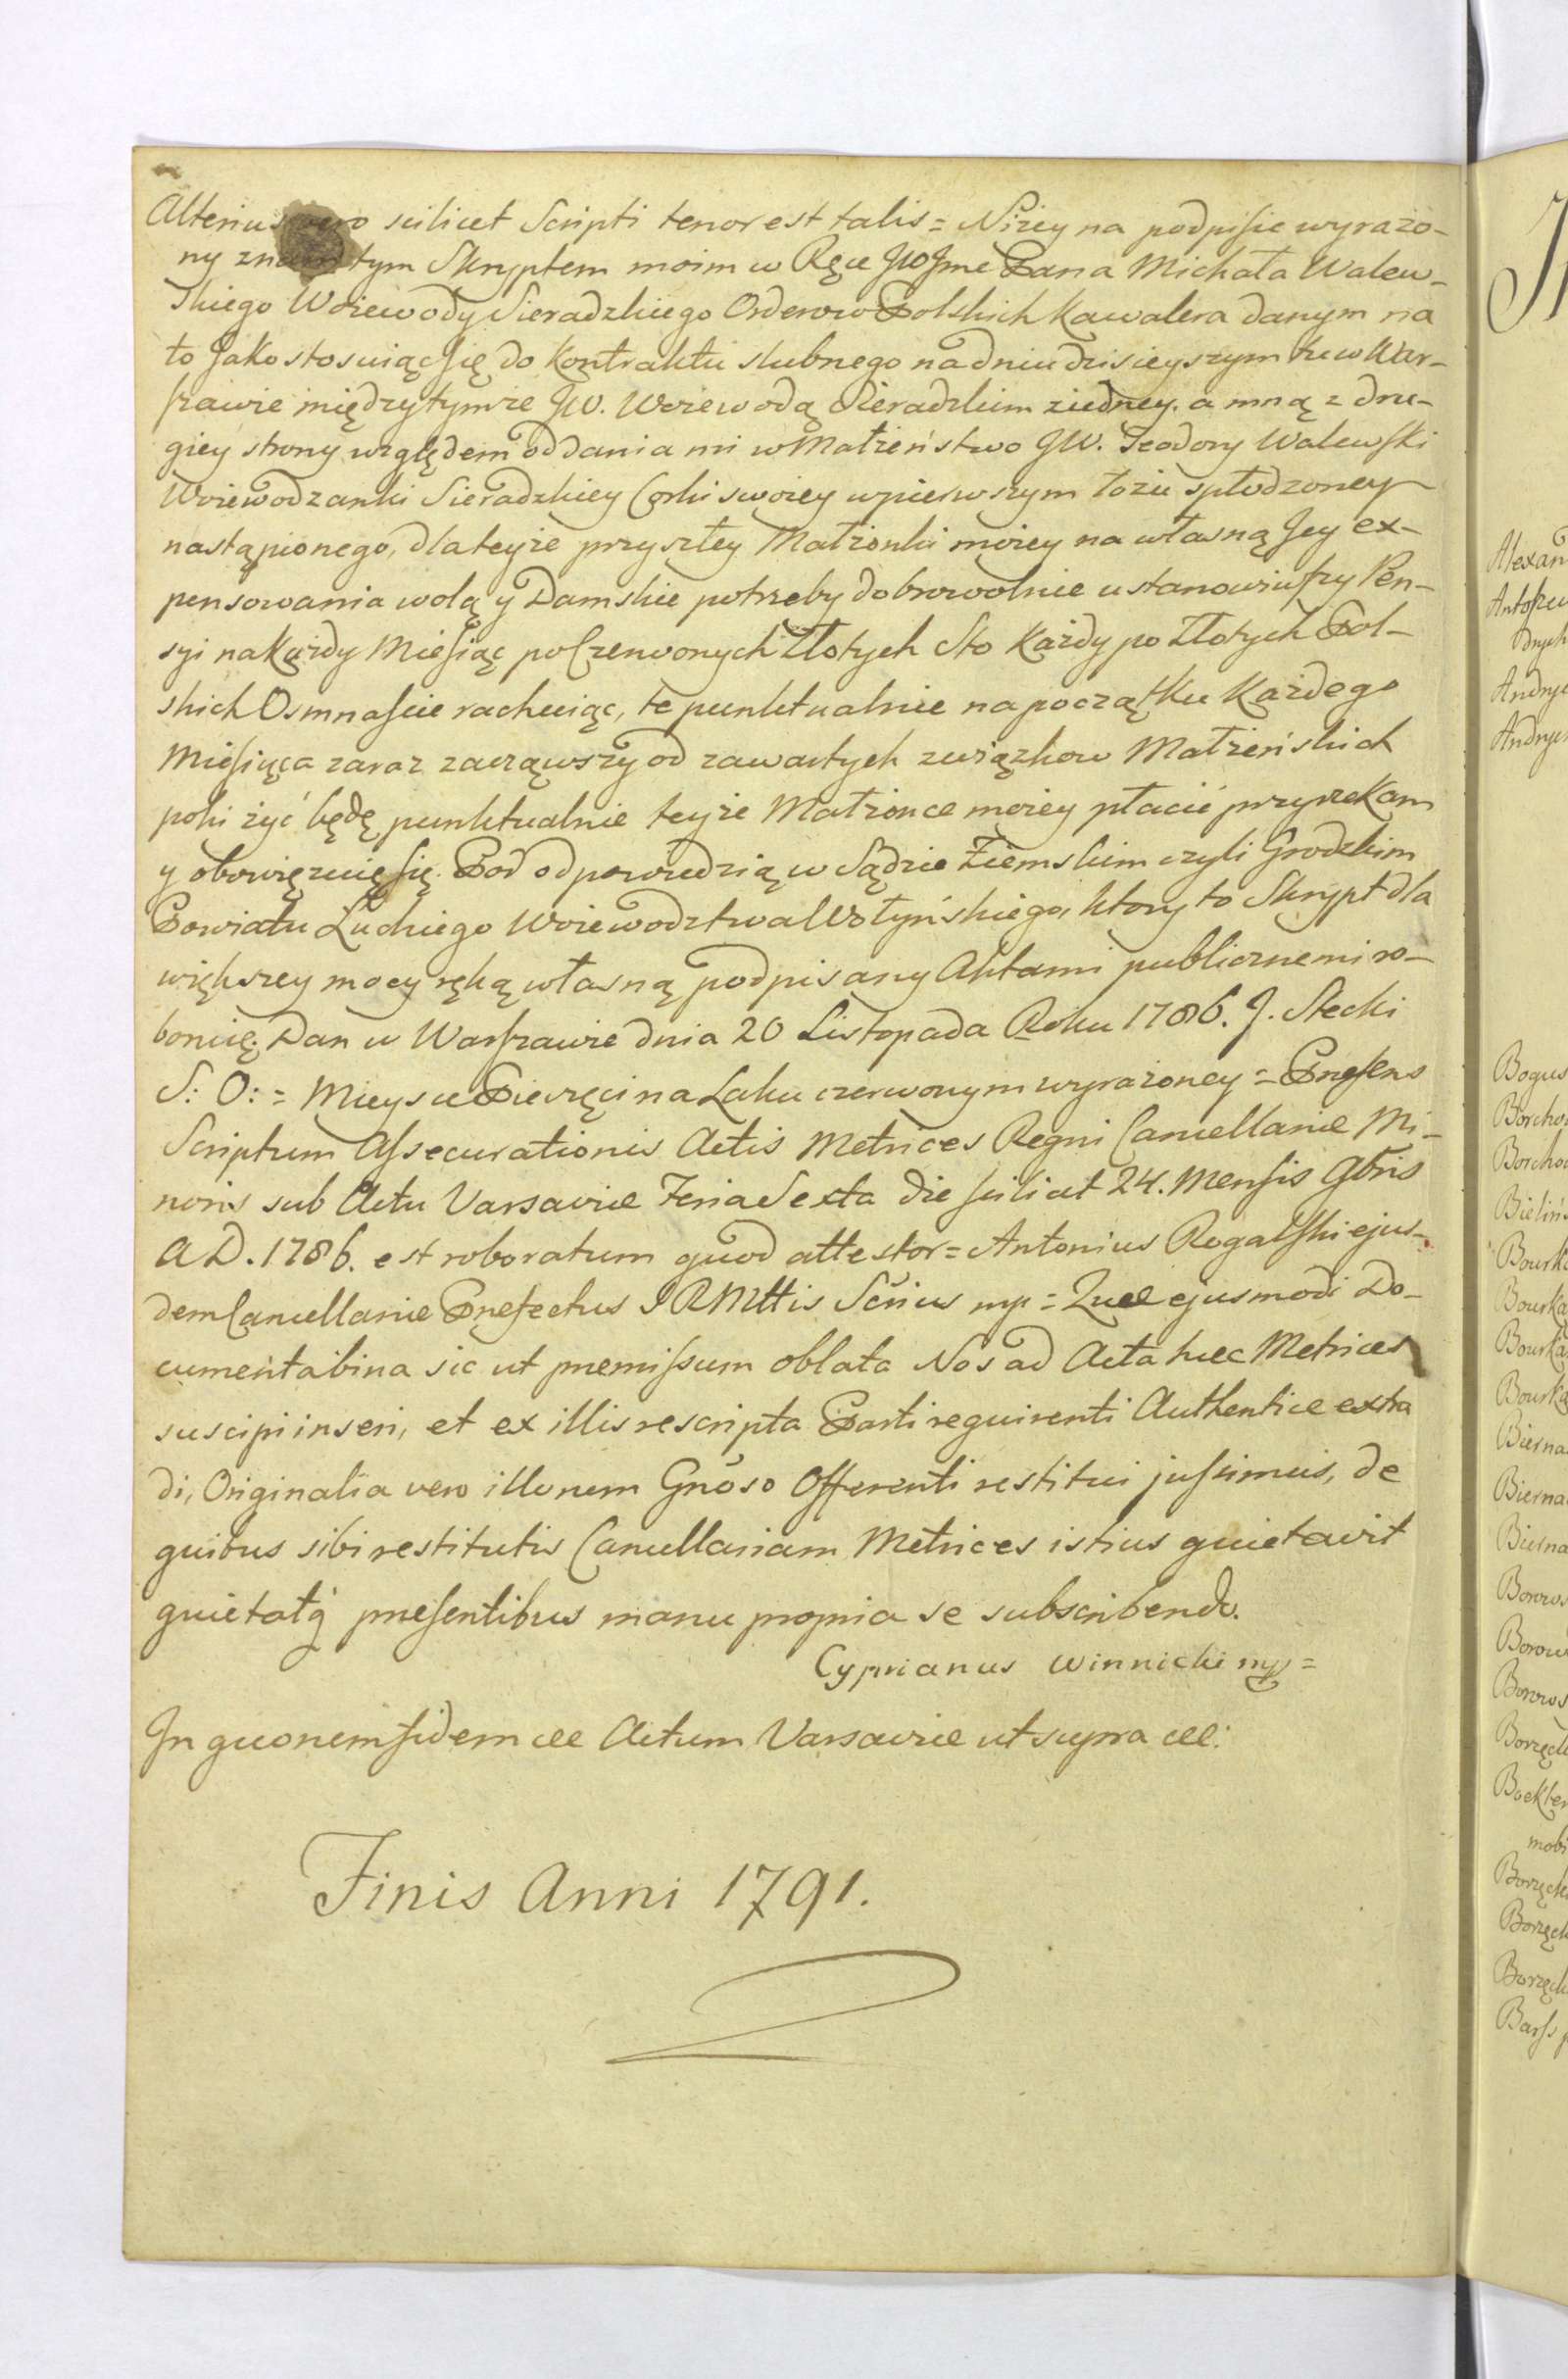 Alterius vero scilicet Scripti tenor est talis = Niżey na podpisie wyrażo-
ny tym Skryptem moim w Ręce JWJmc Pana Michała Walew-
skiego Woiewody Sieradzkiego Orderow Polskich Kawalera danym na
to Jako stosuiąc się do Kontraktu slubnego na dniu dzisieyszym tu w War-
szawie między tymże JW. Woiewodą Sieradzkim z iedney. a mną z dru-
giey strony względem oddania mi w Małżeństwo JW. Teodory Walewski
Woiewodzanki Sieradzkiey Corki swoiey w pierwszym łożu spłodzoney
nastąpionego, dla teyże przyszłey Małżonki moiey na własną Jey ex-
pensowania wolą y Damskie potrzeby dobrowolnie ustanowiwszy Pen-
syi na Każdy Miesiąc po Czerwonych Złotych Sto Każdy po Złotych Pol-
skich Osmnaście rachuiąc, te punktualnie na początku Każdego
Miesiąca zaraz zacząwszy od zawartych związkow Małżeńskich
poki żyć będę punktualnie teyże Małżonce moiey płacić przyrzekam
y obowięzuię się. Pod odpowiedzią w Sądzie Ziemskim czyli Grodzkim
Powiatu Łuckiego Woiewodztwa Wołyńskiego, ktory to Skrypt dla
większey mocy ręką własną podpisany Aktami publicznemi ro-
boruię. Dan w Warszawie dnia 20 Listopada Roku 1786. J. Stecki
S: O: = Mieysce Pieczęci na Laku czerwonym wyrażoney = Præsens
Scriptum Assecurationis Actis Metrices Regni Cancellariæ Mi-
noris sub Actu Varsaviæ Feria Sexta die scilicet 24. Mensis 9bris
A D. 1786. est roboratum quod attestor = Antonius Rogalski ejus-
dem Cancellariæ Præfectus S R Mttis Scrius mp = Quæ ejusmodi Do-
cumenta bina sic ut præmissum oblata Nos ad Acta hæc Metrices
suscipi inseri, et ex illis rescripta Parti requirenti Authentice extra
di, Originalia vero illorum Gnoso Offerenti restitui jussimus, de
quibus sibi restitutis Cancellariam Metrices istius quietavit
quietatq præsentibus manu propria se subscribendo.
Cyprianus Winnicki mp =
In quorum fidem &c Actum Varsaviæ ut supra &c:
Finis Anni 1791.
Alexan
Andry
Andry
Bogus
Borcho
Borcho
Bieliń
Bourk
Bourka
Bourka
Bourk
Bierna
Bierna
Bierna
Borow
Borow
Borows
mobi
Borzęck
Borzęck